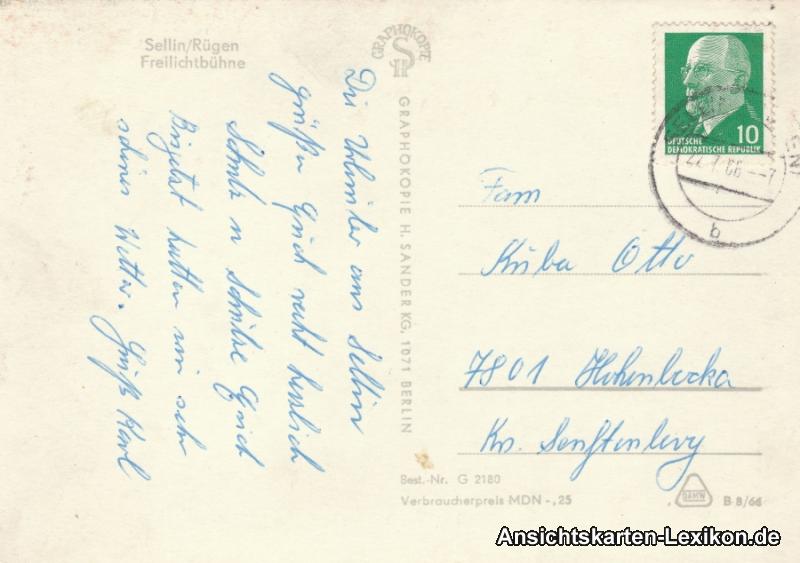 Sellin/Rügen
Freilichtbühne
GRAPHOKOPIE
GRAPHOKOPIE H. SANDER KG, 1071 BERLIN
Die Urlauber aus Sellin
grüßen Euch recht herzlich
Schulz u Schulze Erich
Bisjetzt hatten wir sehr
schönes Wetter. Gruß Karl
10
DEUTSCHE
DEMOKRATISCHE REPUBLIK
22 7 66 – 7
b
Fam
Kuba Otto
7801 Hohenbocka
Kr. Senftenberg
Best.-Nr. G 2180
Verbraucherpreis MDN -,25
DAHW
B 8/66
Ansichtskarten-Lexikon.de